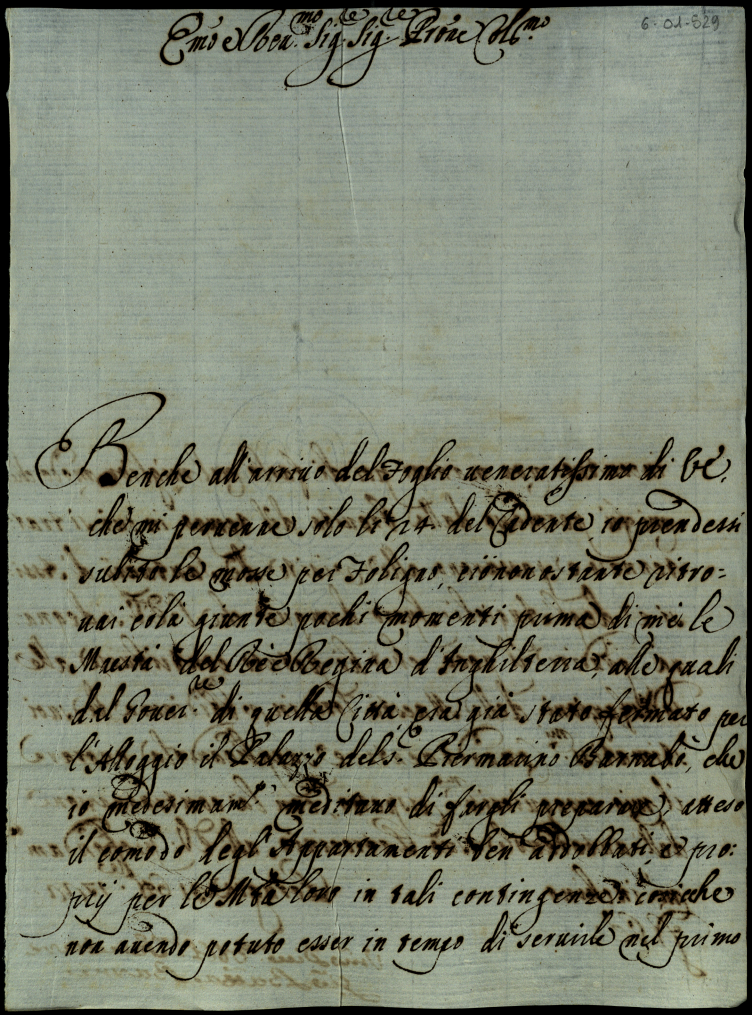 6-01-529
Emo e Rev.mo Sig.re Sig.re Prone Col.mo
Benche all'arriuo del Foglio ueneratissimo di VE.
che mi peruenne solo li 24. del Cadente, io prendessi
subito le mosse per Foligno, ciònonostante ritro=
uai colà giunte pochi momenti prima di mè le
Maestà del Rè e Regina d'Inghilterra, alle quali
dal Gouer.re di quella Città era già stato fermato per
l'Alloggio il Palazzo del S.r Piermarino Barnabò, che
io medesimam.te meditauo di fargli preparare, atteso
il comodo degl'Appartamenti ben addobbati, e pro:
prij per le Mtà loro in tali contingenze; cosicche
non auendo potuto esser in tempo di seruirle nel primo